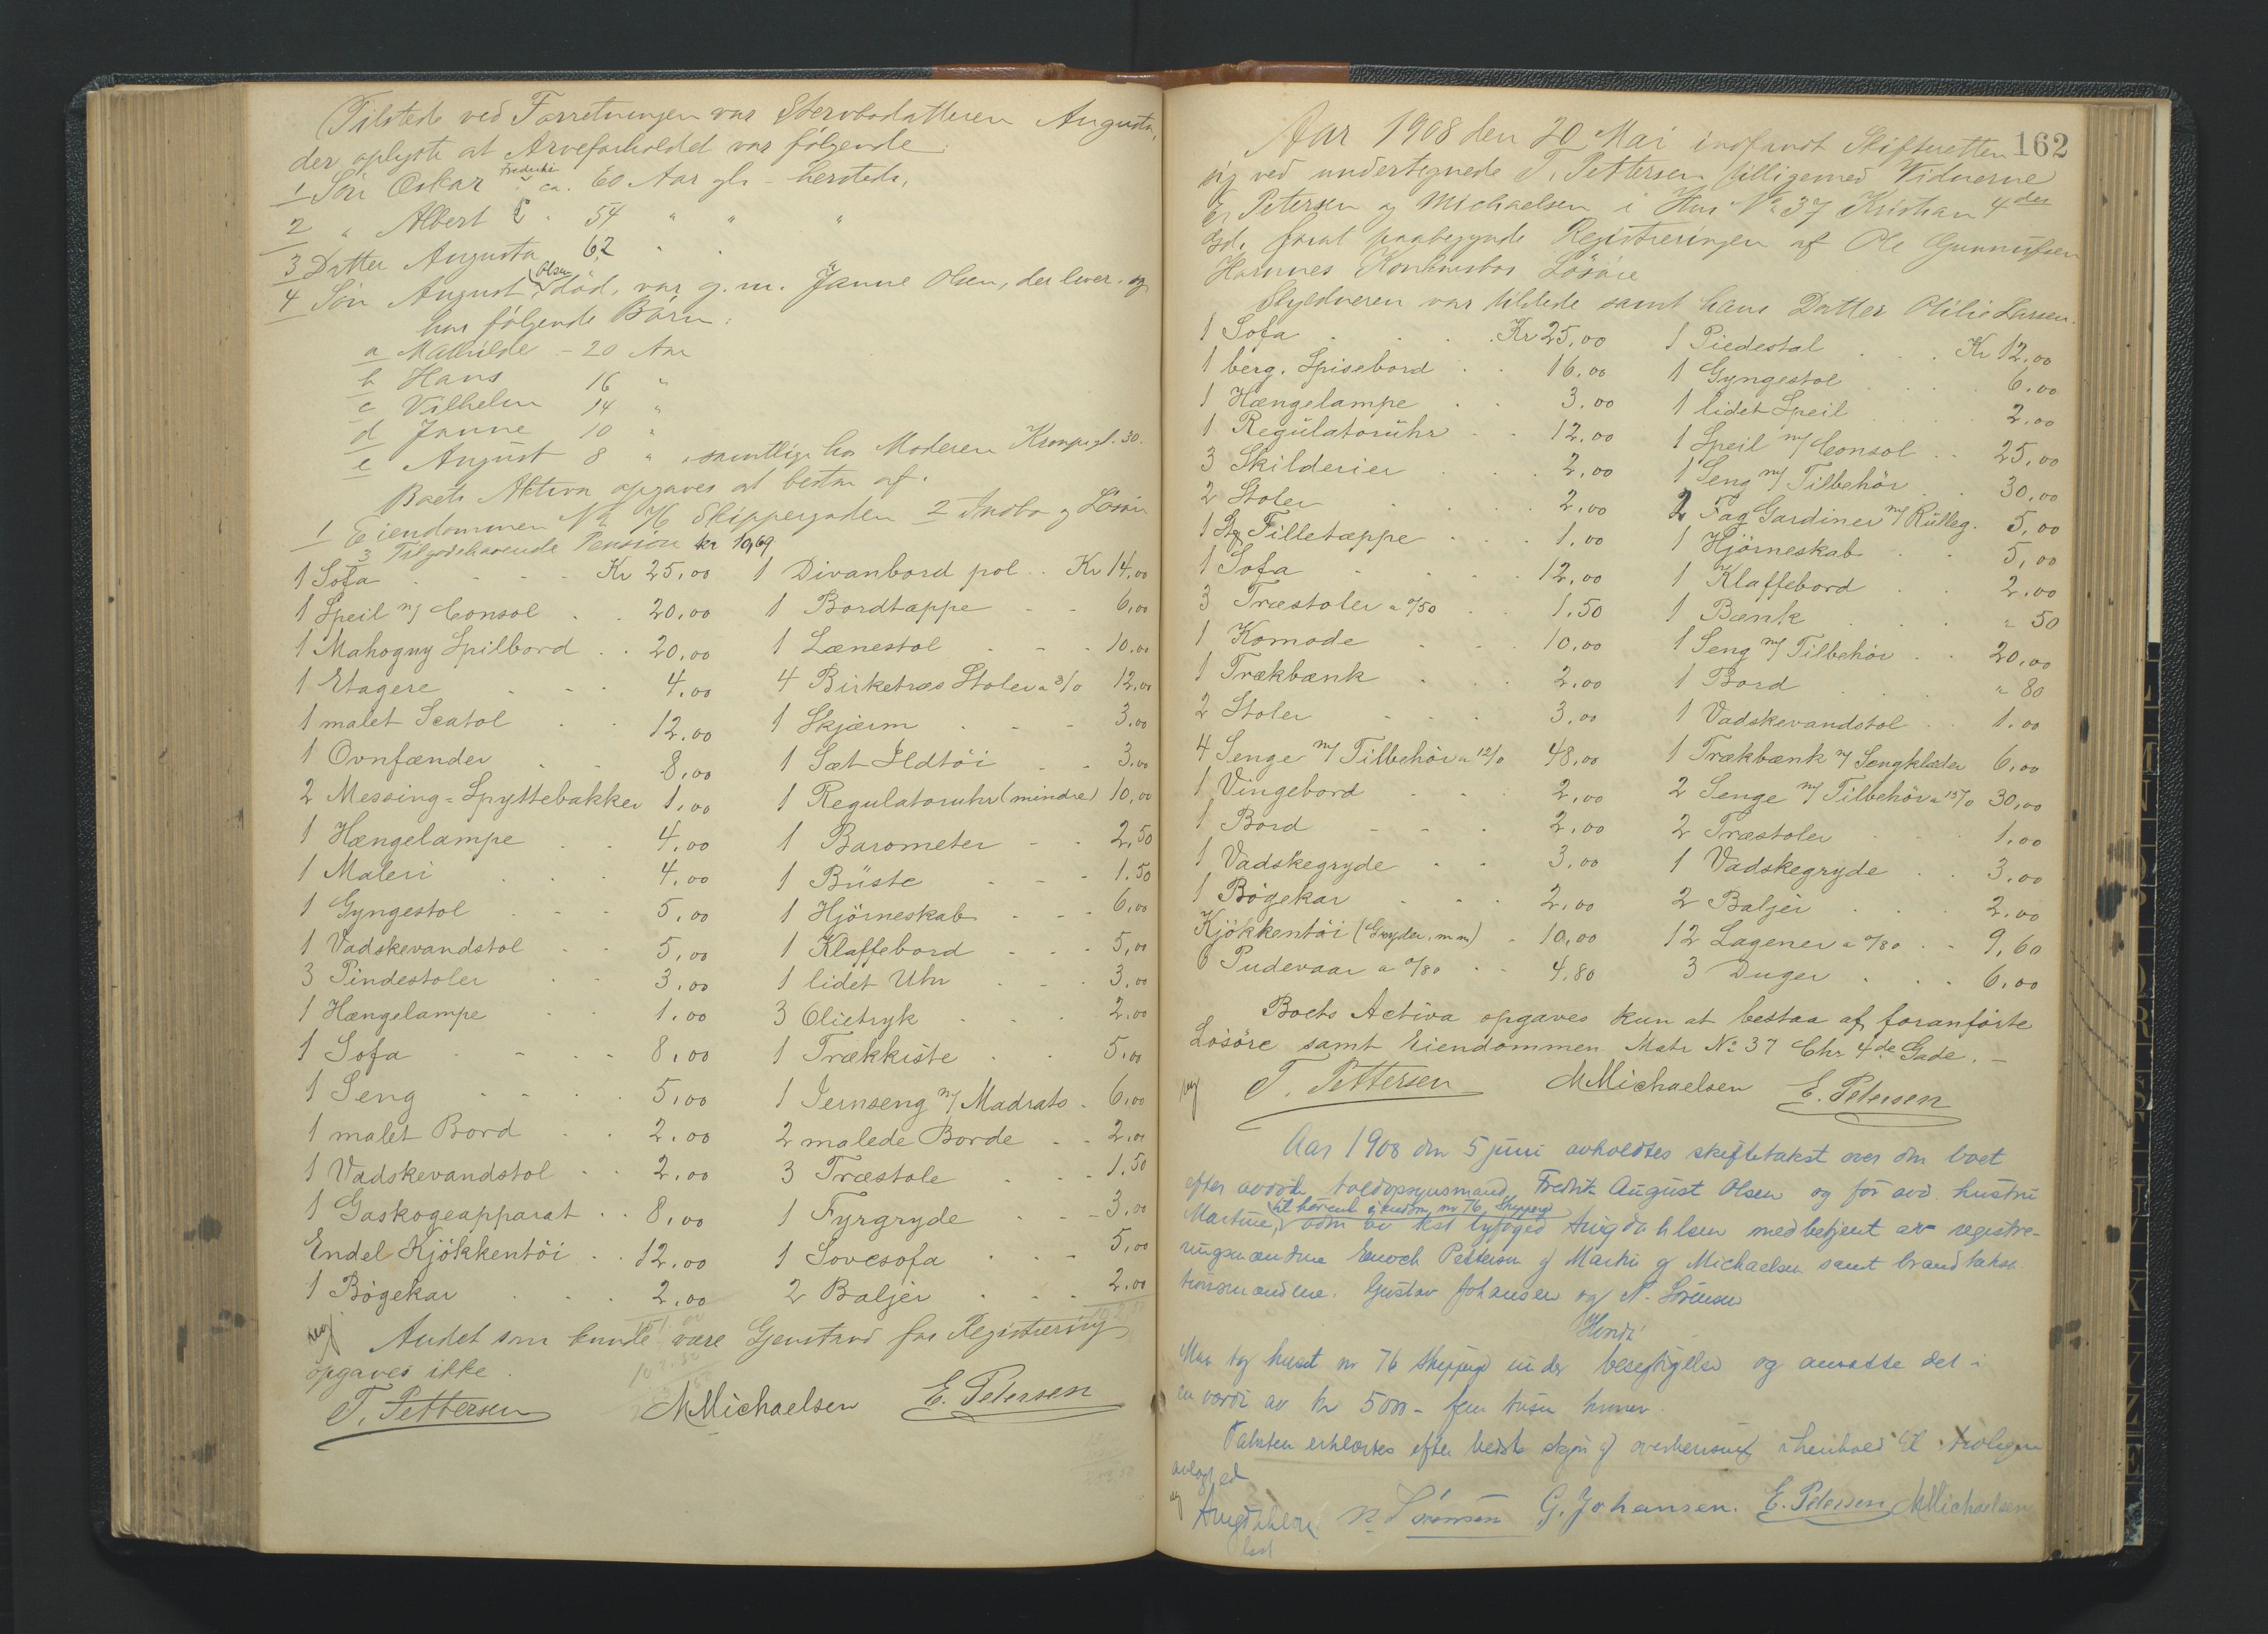 Tilstede ved Forretningen var Stervbodatteren Augusta,
der oplyste at Arveforholdet var følgende:
1 Søn Oskar Fredrik ca. 60 Aar gl. - hersteds,
2 " Albert " 54 " " "
3 Datter Augusta 62 " "
4 Søn August Olsen, död, var g. m. Janne Olsen, der lever og
har følgende Börn:
a Mathilde - 20 Aar
b Hans 16 "
c Vilhelm 14 "
d Janne 10 "
e August 8 " samtlige hos Moderen Kronprgd. 30.
Boets Aktiva opgaves at bestaa af:
1 Eiendommen No 76 Skippergaden 2 Indbo og Lösöre
3 Tilgodehavende Pension kr 10,69
1 Sofa Kr 25,00 1 Divanbord pol. Kr 14,00
1 Speil m/ Consol 20,00 1 Bordtæppe 6,00
1 Mahogny Spilbord 20,00 1 Lænestol 10,00
1 Etagere 4,00 4 Birketræs Stoler a 3/0 12,00
1 malet Scatol 12,00 1 Skjærm 3,00
1 Ovnfænder 8,00 1 Sæt Ildtöi 3,00
2 Messing-Spyttebakker 1,00 1 Regulatoruhr (mindre) 10,00
1 Hængelampe 4,00 1 Barometer 2,50
1 Maleri 4,00 1 Büste 1.50
1 Gyngestol 5,00 1 Hjörneskab 6,00
1 Vadskevandstol 5,00 1 Klaffebord 5,00
3 Pindestoler 3,00 1 lidet Uhr 3,00
1 Hængelampe 1,00 3 Olietryk 2,00
1 Sofa 8,00 1 Trækkiste 5,00
1 Seng 5,00 1 Jernseng m/ Madrats 6,00
1 malet Bord 2,00 2 malede Borde 2,00
1 Vadskevandstol 2,00 3 Træstole 1.50
1 Gaskogeapparat 8,00 1 Fyrgryde 3,00
Endel Kjökkentöi 12,00 1 Sovesofa 5,00
1 Bögekar 2,00 2 Baljer 2,00
Andet som kunde være Gjenstand for Registrering
opgaves ikke.
T. Pettersen MMichaelsen E. Petersen
162
Aar 1908 den 20 Mai indfandt Skifteretten
sig ved undertegnede T. Pettersen tilligemed Vidnerne
E. Petersen og Michaelsen i Hus No 37 Kristian 4des
Gd. forat paabegynde Registreringen af Ole Gunnufsen
Hamnes Konkursbos Lösöre
Skyldneren var tilstede samt hans Datter Otilie Larsen.
1 Sofa Kr 25,00 1 Piedestal Kr 12,00
1 berg. Spisebord 16,00 1 Gyngestol 6,00
1 Hængelampe 3,00 1 lidet Speil 2,00
1 Regulatoruhr 12,00 1 Speil m/ Consol 25,00
3 Skilderier 2,00 1 Seng m/ Tilbehör 30,00
2 Stoler 2,00 2 Fag Gardiner m/ Rülleg. 5,00
1 Filletæppe 1,00 1 Hjörneskab 5,00
1 Sofa 12,00 1 Klaffebord 2,00
3 Træstoler a 0/50 1,50 1 Bænk " 50
1 Komode 10,00 1 Seng m/ Tilbehör 20,00
1 Trækbænk 2,00 1 Bord " 80
2 Stoler 3,00 1 Vadskevandstol 1,00
4 Senge m/ Tilbehör a 12/0 48,00 1 Trækbænk m/ Sengklæder 6,00
1 Vingebord 2,00 2 Senge m/ Tilbehör a 15/0 30,00
1 Bord 2,00 2 Træstoler 1,00
1 Vadskegryde 3,00 1 Vadskegryde 3,00
1 Bögekar 2,00 2 Baljer 2,00
Kjökkentöi (Gryder, m m) 10,00 12 Lagener a 0/80 9,60
6 Pudevaar a 0/80 4,80 3 Duger 6,00
Boets Activa opgaves kun at bestaa af foranförte
Lösöre samt Eiendommen Matr No 37 Chr 4de Gade.
T. Pettersen MMichaelsen E. Petersen
Aar 1908 den 5 juni avholdtes skiftetakst over den boet
efter avdøde toldopsynsmand Fredrik August Olsen og før avd. hustru
Martine, tilhørende eiendom nr 76 Skippergd av kst byfoged Augdahl sen medbetjent av registre-
ringsmændene Enoch Petterson og Martin Michaelsen samt brandtakst
mændene. Gustav Johansen og N. Sörensen
Hvorda
Man tog huset nr 76 Skippgd under besegtigelse og ansatte det i
en værdi av kr 5000 - fem tusen kroner.
Taksten erklærtes efter bedste skjøn og overbevisning i henhold til tidligere
avlagt ed
Augdahl N. Sörensen G. Johansen. E. Petersen MMichaelsen